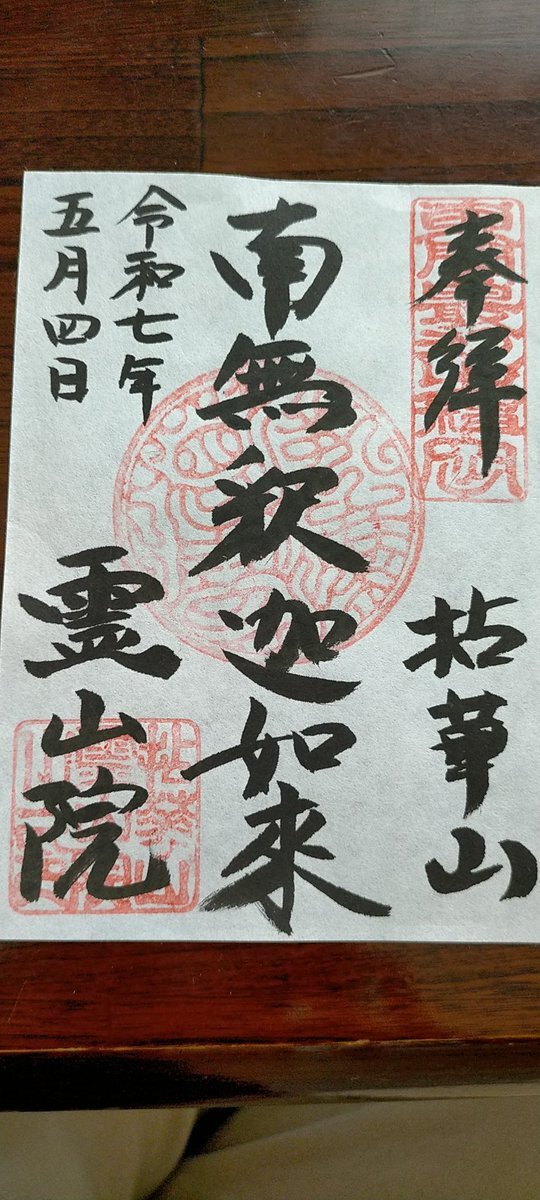 奉拝
拈華山
南無釈迦如來
令和七年
五月四日
霊山院